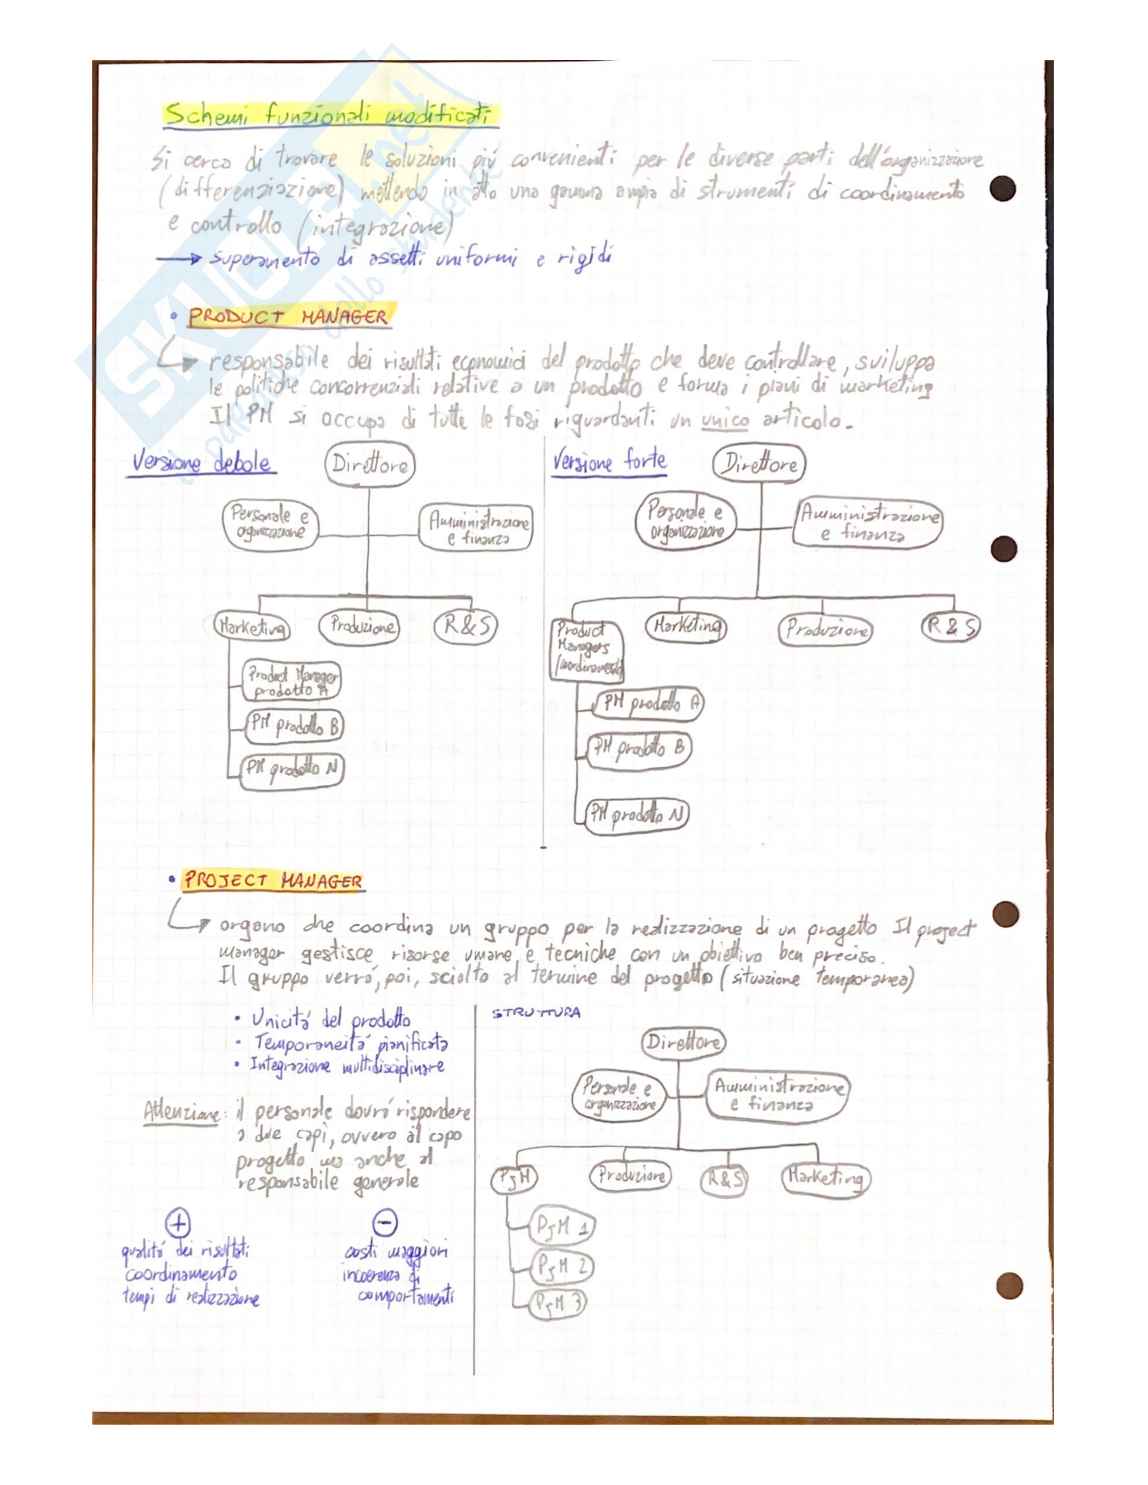 Schemi funzionali modificati
Si cerca di trovare le soluzioni più convenienti per le diverse parti dell'organizzazione
(differenziazione) mettendo in atto una gamma ampia di strumenti di coordinamento
e controllo (integrazione)
→ superamento di assetti uniformi e rigidi
• PRODUCT MANAGER
responsabile dei risultati economici del prodotto che deve controllare, sviluppa
le politiche concorrenziali relative a un prodotto e forma i piani di marketing
Il PM si occupa di tutte le fasi riguardanti un unico articolo.
Versione debole
Direttore
Personale e
organizzazione
Amministrazione
e finanza
Marketing
Produzione
R&S
Product Manager
prodotto A
PM prodotto B
PM prodotto N
Versione forte
Direttore
Personale e
organizzazione
Amministrazione
e finanza
Product
Managers
Marketing
Produzione
R & S
PM prodotto A
PM prodotto B
PM prodotto N
• PROJECT MANAGER
organo che coordina un gruppo per la realizzazione di un progetto Il project
manager gestisce risorse umane e tecniche con un obiettivo ben preciso.
Il gruppo verrà, poi, sciolto al termine del progetto (situazione temporanea)
• Unicità del prodotto
• Temporaneità pianificata
• Integrazione multidisciplinare
Attenzione: il personale dovrà rispondere
a due capi, ovvero al capo
progetto ma anche al
responsabile generale
+
qualità dei risultati
coordinamento
tempi di realizzazione
-
costi maggiori
incoerenza di
comportamenti
STRUTTURA
Direttore
Personale e
organizzazione
Amministrazione
e finanza
PjM
Produzione
R&S
Marketing
PjM 1
PjM 2
PjM 3
SKUOLA.net